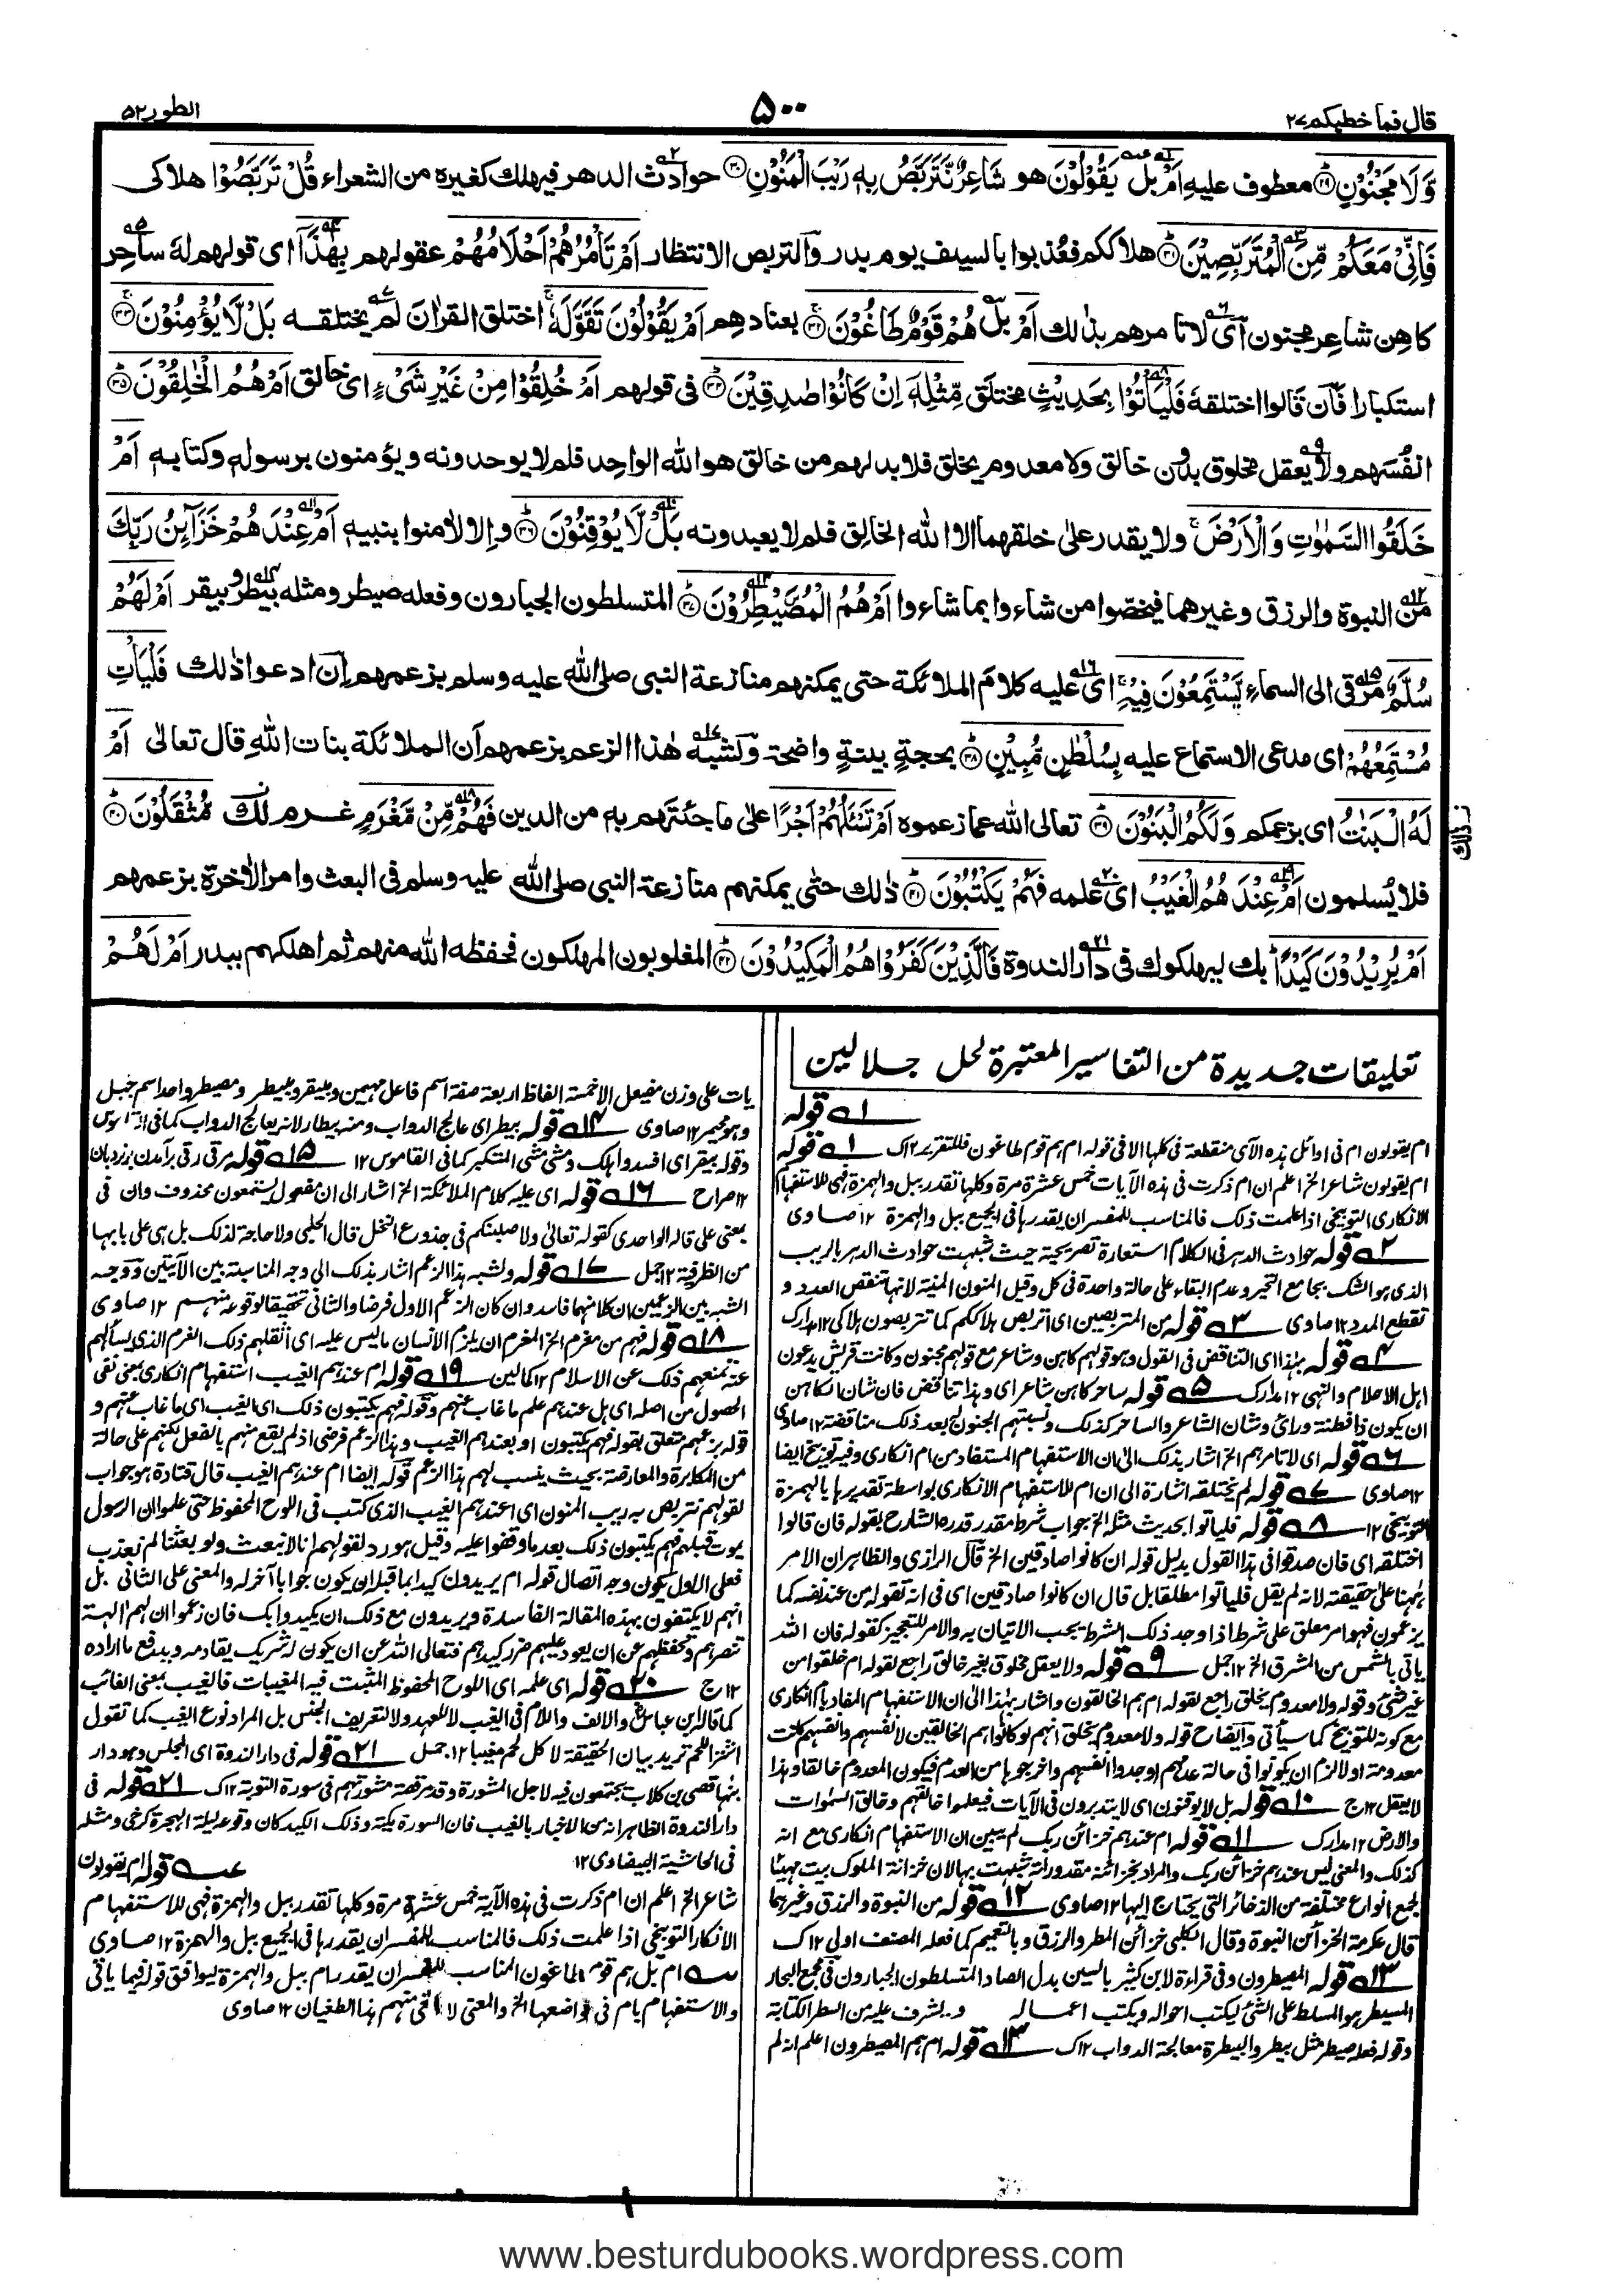 قال فما خطبكم ٢٧
٥٠٠
الطور ٥٢
وَّلَا مَجْنُوْنٍ ۝٢٩ معطوف عليه اَمْ بل يَقُوْلُوْنَ هو شَاعِرٌ نَّتَرَبَّصُ بِهٖ رَيْبَ الْمَنُوْنِ ۝٣٠ حوادث الدهر فيهلك كغيره من الشعراء قُلْ تَرَبَّصُوْا هلاكى
فَاِنِّيْ مَعَكُمْ مِّنَ الْمُتَرَبِّصِيْنَ ۝٣١ هلاككم فعُذبوا بالسيف يوم بدر والتربص الانتظار اَمْ تَاْمُرُهُمْ اَحْلَامُهُمْ عقولهم بِهٰذَآ اى قولهم له ساحر
كاهن شاعر مجنون اى لا تامرهم بذلك اَمْ بل هُمْ قَوْمٌ طَاغُوْنَ ۝٣٢ بعنادهم اَمْ يَقُوْلُوْنَ تَقَوَّلَهٗ اختلق القراٰن لم يختلقه بَلْ لَّا يُؤْمِنُوْنَ ۝٣٣
استكبارا فان قالوا اختلقه فَلْيَاْتُوْا بِحَدِيْثٍ مختلق مِّثْلِهٖٓ اِنْ كَانُوْا صٰدِقِيْنَ ۝٣٤ فى قولهم اَمْ خُلِقُوْا مِنْ غَيْرِ شَيْءٍ اى خالق اَمْ هُمُ الْخٰلِقُوْنَ ۝٣٥
انفُسَهم ولا يعقل مخلوق بدون خالق ولا معدوم يخلق فلا بد لهم من خالق هو الله الواحد فلم لا يوحدونه ويؤمنون برسوله وكتابه اَمْ
خَلَقُوا السَّمٰوٰتِ وَالْاَرْضَ ولا يقدر على خلقهما الا الله الخالق فلم لا يعبدونه بَلْ لَّا يُوْقِنُوْنَ ۝٣٦ والا لاٰمنوا بنبيه اَمْ عِنْدَهُمْ خَزَآئِنُ رَبِّكَ
من النبوة والرزق وغيرهما فيخصّوا من شاءوا بما شاءوا اَمْ هُمُ الْمُصَۜيْطِرُوْنَ ۝٣٧ المتسلطون الجبارون وفعله صيطر ومثله بيطر وبيقر اَمْ لَهُمْ
سُلَّمٌ مرقى الى السماء يَّسْتَمِعُوْنَ فِيْهِ اى عليه كلام الملائكة حتى يمكنهم منازعة النبى صلى الله عليه وسلم بزعمهم ان ادعوا ذٰلك فَلْيَاْتِ
مُسْتَمِعُهُمْ اى مدعى الاستماع عليه بِسُلْطٰنٍ مُّبِيْنٍ ۝٣٨ بحجةٍ بينةٍ واضحة ولشبه هٰذا الزعم بزعمهم ان الملائكة بنات الله قال تعالى اَمْ
لَهُ الْبَنٰتُ اى بزعمكم وَلَكُمُ الْبَنُوْنَ ۝٣٩ تعالى الله عما زعموه اَمْ تَسْـَٔلُهُمْ اَجْرًا على ما جئتهم به من الدين فَهُمْ مِّنْ مَّغْرَمٍ غرم لك مُّثْقَلُوْنَ ۝٤٠
ذلك
فلا يُسلمون اَمْ عِنْدَهُمُ الْغَيْبُ اى علمه فَهُمْ يَكْتُبُوْنَ ۝٤١ ذٰلك حتى يمكنهم منازعة النبى صلى الله عليه وسلم فى البعث وامر الاٰخرة بزعمهم
اَمْ يُرِيْدُوْنَ كَيْدًا بك ليهلكوك فى دار الندوة فَالَّذِيْنَ كَفَرُوْا هُمُ الْمَكِيْدُوْنَ ۝٤٢ المغلوبون المهلكون فحفظه الله منهم ثم اهلكهم ببدر اَمْ لَهُمْ
تعليقات جديدة من التفاسير المعتبرة لحل جلالين
١ قوله
ام يقولون ام فى اوائل هذه الآى منقطعة فى كلها الا فى قوله ام هم قوم طاغون فللتقرير ١٢ك ١ قوله
ام يقولون شاعر الخ اعلم ان ام ذكرت فى هذه الآيات خمس عشرة مرة وكلها تقدر ببل والهمزة فهى للاستفهام
الانكارى التوبيخى اذا علمت ذلك فالمناسب للمفسر ان يقدرها فى الجميع ببل والهمزة ١٢ صاوى
٢ قوله حوادث الدهر فى الكلام استعارة تصريحية حيث شبهت حوادث الدهر بالريب
الذى هو الشك بجامع التحير وعدم البقاء على حالة واحدة فى كل وقيل المنون المنية لانها تنقص العدد و
تقطع المدد ١٢ صاوى ٣ قوله من المتربصين اى اتربص هلاككم كما تتربصون هلاكى ١٢ مدارك
٤ قوله بهذا اى التناقض فى القول وهو قولهم كاهن وشاعر مع قولهم مجنون وكانت قريش يدعون
اهل الاحلام والنهى ١٢ مدارك ٥ قوله ساحر كاهن شاعر اى وهذا تناقض فان شان الكاهن
ان يكون ذا فطنة وراى وشان الشاعر والساحر كذلك ونسبتهم الجنون بعد ذلك مناقضة ١٢ صاوى
٦ قوله اى لا تامرهم الخ اشار بذلك الى ان الاستفهام المستفاد من ام انكارى وفيه توبيخ ايضا
١٢ صاوى ٧ قوله لم يختلقه اشارة الى ان ام للاستفهام الانكارى بواسطة تقديرها بالهمزة
التوبيخى ١٢ ٨ قوله فلياتوا بحديث مثله الخ جواب شرط مقدر قدره الشارح بقوله فان قالوا
اختلقه اى فان صدقوا فى هذا القول بدليل قوله ان كانوا صادقين الخ قال الرازى والظاهر ان الامر
ههنا على حقيقته لانه لم يقل فلياتوا مطلقا بل قال ان كانوا صادقين اى فى انه تقوله من عند نفسه كما
يزعمون فهو امر معلق على شرط اذا وجد ذلك الشرط يجب الاتيان به والامر للتعجيز كقوله فان الله
ياتى بالشمس من المشرق الخ ١٢ جمل ٩ قوله ولا يعقل مخلوق بغير خالق راجع لقوله ام خلقوا من
غير شئ وقوله ولا معدوم يخلق راجع لقوله ام هم الخالقون واشار بهذا الى ان الاستفهام المفاد بام انكارى
مع كونه للتوبيخ كما سيأتى وايضاح قوله ولا معدوم يخلق انهم لو كانوا هم الخالقين لانفسهم وانفسهم كانت
معدومة اولا لزم ان يكونوا فى حالة عدمهم اوجدوا انفسهم واخرجوها من العدم فيكون المعدوم خالقا وهذا
لا يعقل ١٢ج ١٠ قوله بل لا يوقنون اى لا يتدبرون فى الآيات فيعلموا خالقهم وخالق السمٰوات
والارض ١٢ مدارك ١١ قوله ام عندهم خزائن ربك لم يبين ان الاستفهام انكارى مع انه
كذلك والمعنى ليس عندهم خزائن ربك والمراد بخزائنه مقدوراته شبهت بها لان خزانة الملوك بيت مهيئا
لجمع انواع مختلفة من الذخائر التى يحتاج اليها ١٢ صاوى ١٢ قوله من النبوة والرزق وغيرهما
قال عكرمة الخزائن النبوة وقال الكلبى خزائن المطر والرزق وبالتعميم كما فعله المصنف اولى ١٢ك
١٣ قوله المصيطرون وفى قراءة لابن كثير بالسين بدل الصاد المتسلطون الجبارون فى مجمع البحار
المسيطر هو المسلط على الشئ ليكتب احواله ويكتب اعماله ويشرف عليه من السطر الكتابة
وقوله فعله صيطر مثل بيطر والبيطرة معالجة الدواب ١٢ك ١٣ قوله ام هم المصيطرون اعلم انه لم
يات على وزن مفيعل الا خمسة الفاظ اربعة صفة اسم فاعل مهيمن ومبيقر ومبيطر ومصيطر واحد اسم جبل
وهو مجيمر ١٢ صاوى ١٤ قوله بيطر اى عالج الدواب ومنه بيطار لانه يعالج الدواب كما فى القاموس
وقوله بيقر اى افسد واهلك ومشى مشى المتكبر كما فى القاموس ١٢ ١٥ قوله مرقى رقى برآمدن بر نردبان
١٢ صراح ١٦ قوله اى عليه كلام الملائكة الخ اشار الى ان مفعول يستمعون محذوف وان فى
بمعنى على قاله الواحدى كقوله تعالى ولاصلبنكم فى جذوع النخل قال الحلبى ولا حاجة لذلك بل هى على بابها
من الظرفية ١٢ جمل ١٧ قوله ولشبه هذا الزعم اشار بذلك الى وجه المناسبة بين الآيتين ووجه
الشبه بين الزعمين ان كلا منهما فاسد وان كان الزعم الاول فرضا والثانى تحقيقا لوقوعه منهم ١٢ صاوى
١٨ قوله فهم من مغرم الخ المغرم ان يلزم الانسان ما ليس عليه اى اثقلهم ذلك الغرم الذى يسألهم
عنه فمنعهم ذلك عن الاسلام ١٢ كمالين ١٩ قوله ام عندهم الغيب استفهام انكارى بمعنى نفى
الحصول من اصله اى بل عندهم علم ما غاب عنهم وقوله فهم يكتبون ذلك اى الغيب اى ما غاب عنهم و
قوله بزعمهم متعلق بقوله فهم يكتبون او بعندهم الغيب وهذا الزعم فرضى اذ لم يقع منهم بالفعل لكنهم على حالة
من المكابرة والمعارضة بحيث ينسب لهم هذا الزعم قوله ايضا ام عندهم الغيب قال قتادة هو جواب
لقولهم نتربص به ريب المنون اى اعندهم الغيب الذى كتب فى اللوح المحفوظ حتى علموا ان الرسول
يموت قبلهم فهم يكتبون ذلك بعد ما وقفوا عليه وقيل هو رد لقولهم انا لا نبعث ولو بعثنا لم نعذب
فعلى الاول يكون وجه اتصال قوله ام يريدون كيدا بما قبله ان يكون جوابا آخر له والمعنى على الثانى بل
انهم لا يكتفون بهذه المقالة الفاسدة ويريدون مع ذلك ان يكيدوا بك فان زعموا ان لهم الهة
تنصرهم وتحفظهم عن ان يعود عليهم ضرر كيدهم فتعالى الله عن ان يكون له شريك يقادمه ويدفع ما اراده
١٢ج ٢٠ قوله اى علمه اى اللوح المحفوظ المثبت فيه المغيبات فالغيب بمعنى الغائب
كما قاله ابن عباس والالف واللام فى الغيب لا للعهد ولا لتعريف الجنس بل المراد نوع الغيب كما تقول
اشتر اللحم تريد بيان الحقيقة لا كل لحم مغيبا ١٢ جمل ٢١ قوله فى دار الندوة اى المجلس وهو دار
بناها قصى بن كلاب يجتمعون فيه لاجل المشورة وقد مر قصة مشورتهم فى سورة التوبة ١٢ك ٢١ قوله فى
دار الندوة الظاهر انه من الاخبار بالغيب فان السورة مكية وذلك الكيد كان وقوعه ليلة الهجرة كرخى ومثله
فى الحاشية البيضاوى ١٢ عــه قوله ام يقولون
شاعر الخ اعلم ان ام ذكرت فى هذه الآية خمس عشرة مرة وكلها تقدر ببل والهمزة فهى للاستفهام
الانكار التوبيخى اذا علمت ذلك فالمناسب للمفسر ان يقدرها فى الجميع ببل والهمزة ١٢ صاوى
ســه ام بل هم قوم طاغون المناسب للمفسر ان يقدر ام ببل والهمزة ليوافق قوله فيما ياتى
والاستفهام بام فى مواضعها الخ والمعنى لا ينبغى منهم هذا الطغيان ١٢ صاوى
www.besturdubooks.wordpress.com